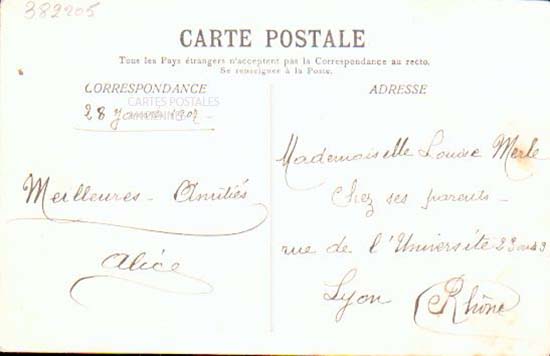 382205
CARTE POSTALE
Tous les Pays étrangers n'acceptent pas la Correspondance au recto.
Se renseigner à la Poste.
CORRESPONDANCE
CARTES POSTALES
28 Janvier 1907
Meilleures - Amitiés
Alice
ADRESSE
Mademoiselle Louise Merle
Chez ses parents -
rue de l'Université 23
Lyon
Rhône